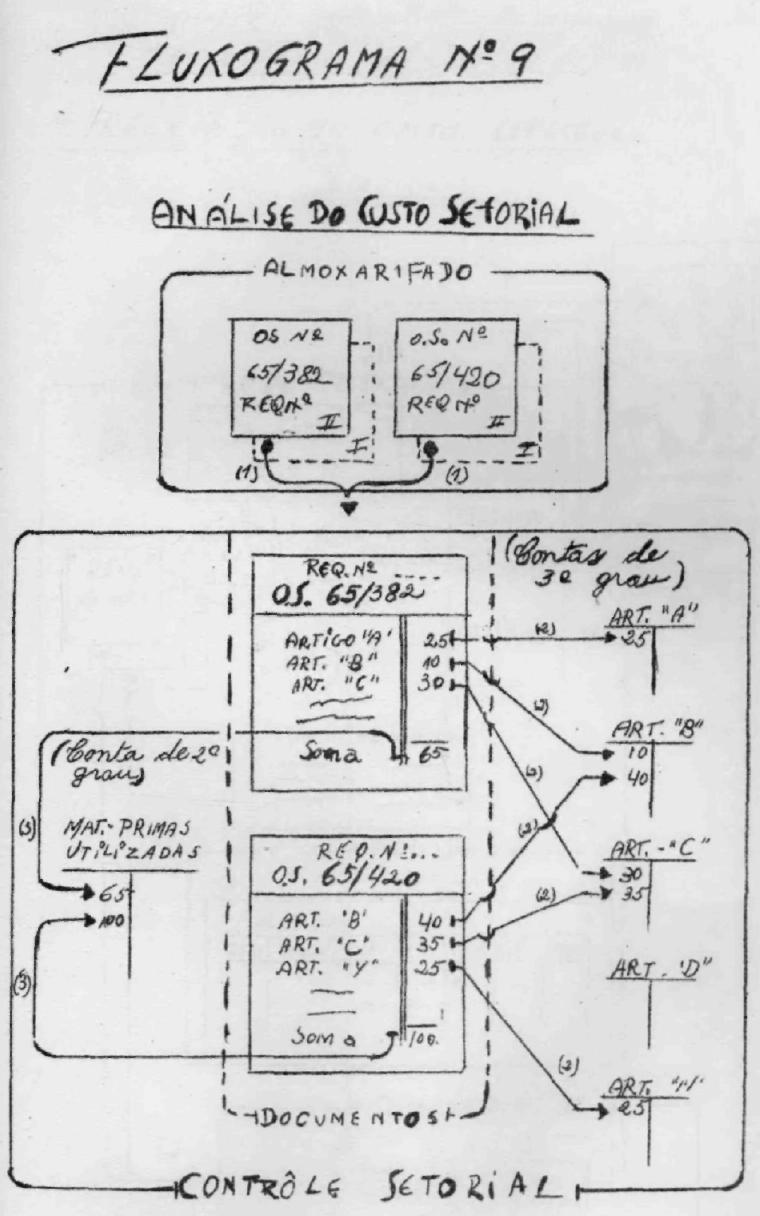 FLUXOGRAMA Nº 9
ANÁLISE DO CUSTO SETORIAL
ALMOXARIFADO
OS Nº
65/382
REQ Nº
II
I
(1)
O.S. Nº
65/420
REQ Nº
II
I
(1)
REQ. Nº ....
O.S. 65/382
ARTIGO "A" 25
ART. "B" 10
ART. "C" 30
Soma 65
REQ. Nº...
O.S. 65/420
ART. "B" 40
ART. "C" 35
ART. "Y" 25
Soma 100
DOCUMENTOS
(Conta de 2º
grau)
MAT.-PRIMAS
UTILIZADAS
65
100
(3)
(3)
(Contas de
3º grau)
ART. "A"
25
(2)
ART. "B"
10
40
(2)
(2)
ART. - "C"
30
35
(2)
(2)
ART. "D"
ART.
25
(2)
CONTRÔLE SETORIAL